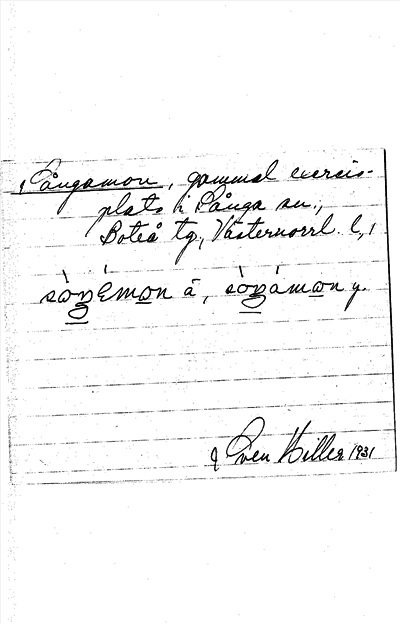 Sångamon, gammal exercis-
plats i Sånga sn.,
Boteå tg, Västernorrl. l.,
sòŋémon ä, sòŋámon y.
Sven Hiller 1931